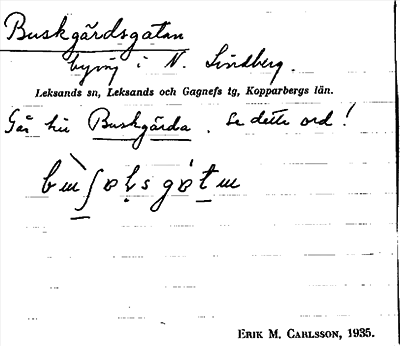 Buskgårdsgatan
byväg i N. Lindberg.
Leksands sn, Leksands och Gagnefs tg, Kopparbergs län.
Går hit Buskgårda. Se dette ord!
ERIK M. CARLSSON, 1935.